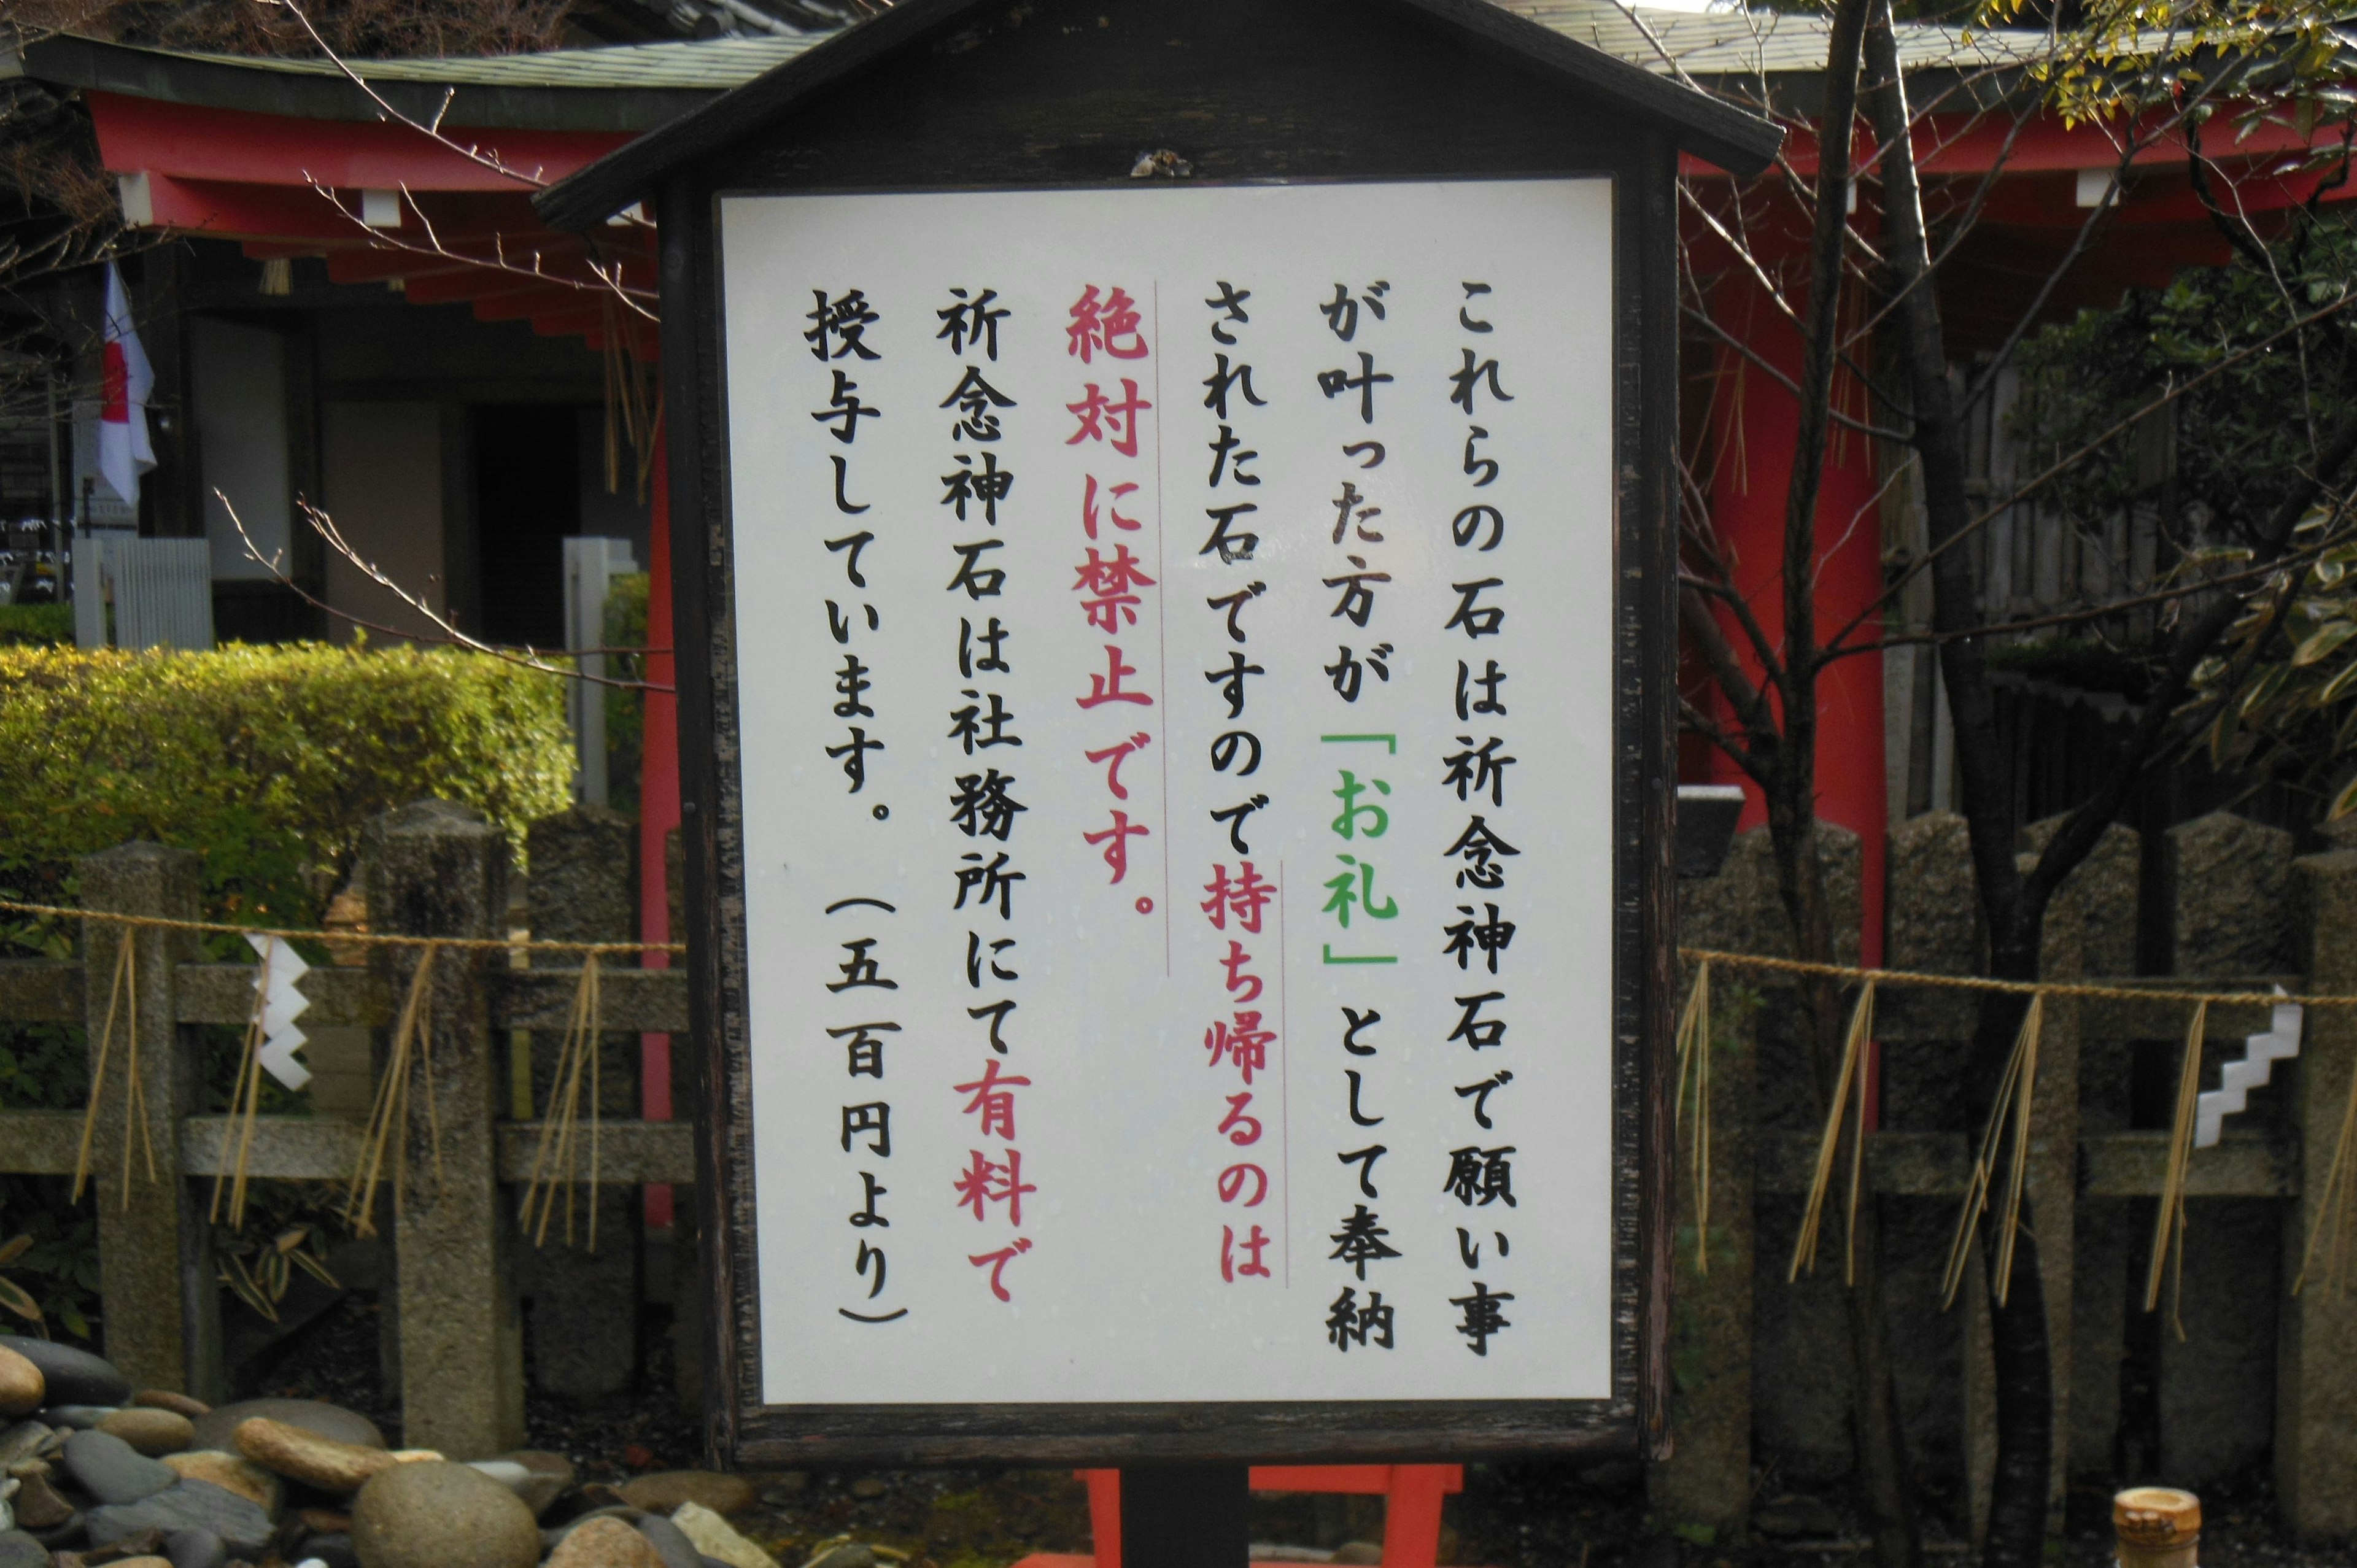 これらの石は祈念神石で願い事
が叶った方が「お礼」として奉納
された石ですので持ち帰るのは
絶対に禁止です。
祈念神石は社務所にて有料で
授与しています。(五百円より)